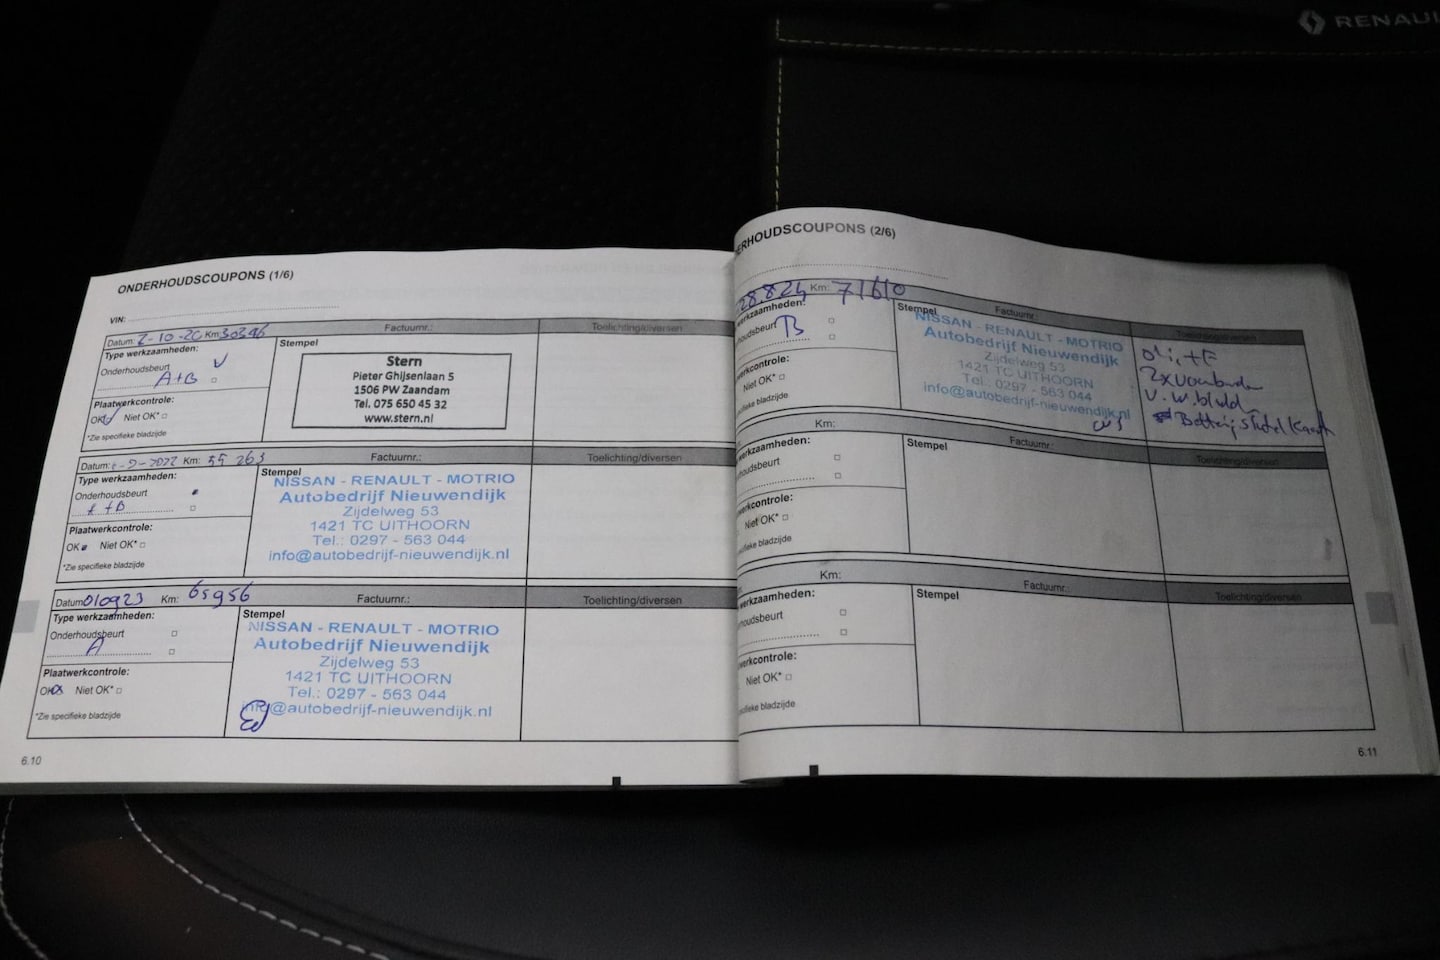 RENAUL
ONDERHOUDSCOUPONS (1/6)
VIN:
Datum: 2-10-20 Km: 30346 Factuurnr.: Toelichting/diversen
Type werkzaamheden:
Onderhoudsbeurt
A+B
Plaatwerkcontrole:
OK Niet OK*
*Zie specifieke bladzijde
Stempel
Stern
Pieter Ghijsenlaan 5
1506 PW Zaandam
Tel. 075 650 45 32
www.stern.nl
Datum: -9-2022 Km: 55 263 Factuurnr.: Toelichting/diversen
Type werkzaamheden:
Onderhoudsbeurt
+B
Plaatwerkcontrole:
OK Niet OK*
*Zie specifieke bladzijde
Stempel
NISSAN - RENAULT - MOTRIO
Autobedrijf Nieuwendijk
Zijdelweg 53
1421 TC UITHOORN
Tel.: 0297 - 563 044
info@autobedrijf-nieuwendijk.nl
Datum: 010923 Km: 65956 Factuurnr.: Toelichting/diversen
Type werkzaamheden:
Onderhoudsbeurt
A
Plaatwerkcontrole:
OK Niet OK*
*Zie specifieke bladzijde
Stempel
NISSAN - RENAULT - MOTRIO
Autobedrijf Nieuwendijk
Zijdelweg 53
1421 TC UITHOORN
Tel.: 0297 - 563 044
info@autobedrijf-nieuwendijk.nl
6.10
ERHOUDSCOUPONS (2/6)
28.8.24 Km: 71610 Factuurnr.: Toelichting/diversen
werkzaamheden:
houdsbeurt B
werkcontrole:
Niet OK*
ecifieke bladzijde
Stempel
NISSAN - RENAULT - MOTRIO
Autobedrijf Nieuwendijk
Zijdelweg 53
1421 TC UITHOORN
Tel.: 0297 - 563 044
info@autobedrijf-nieuwendijk.nl
Km: Factuurnr.: Toelichting/diversen
werkzaamheden:
houdsbeurt
werkcontrole:
Niet OK*
ecifieke bladzijde
Stempel
Km: Factuurnr.: Toelichting/diversen
werkzaamheden:
houdsbeurt
werkcontrole:
Niet OK*
ecifieke bladzijde
Stempel
6.11